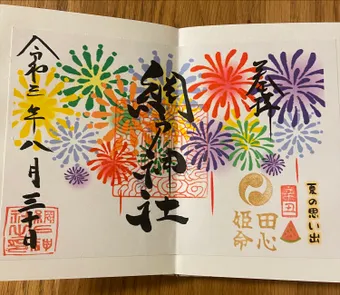 奉拝
夏の思い出
辛丑
田心
姫命
神社
令和三年八月三十日